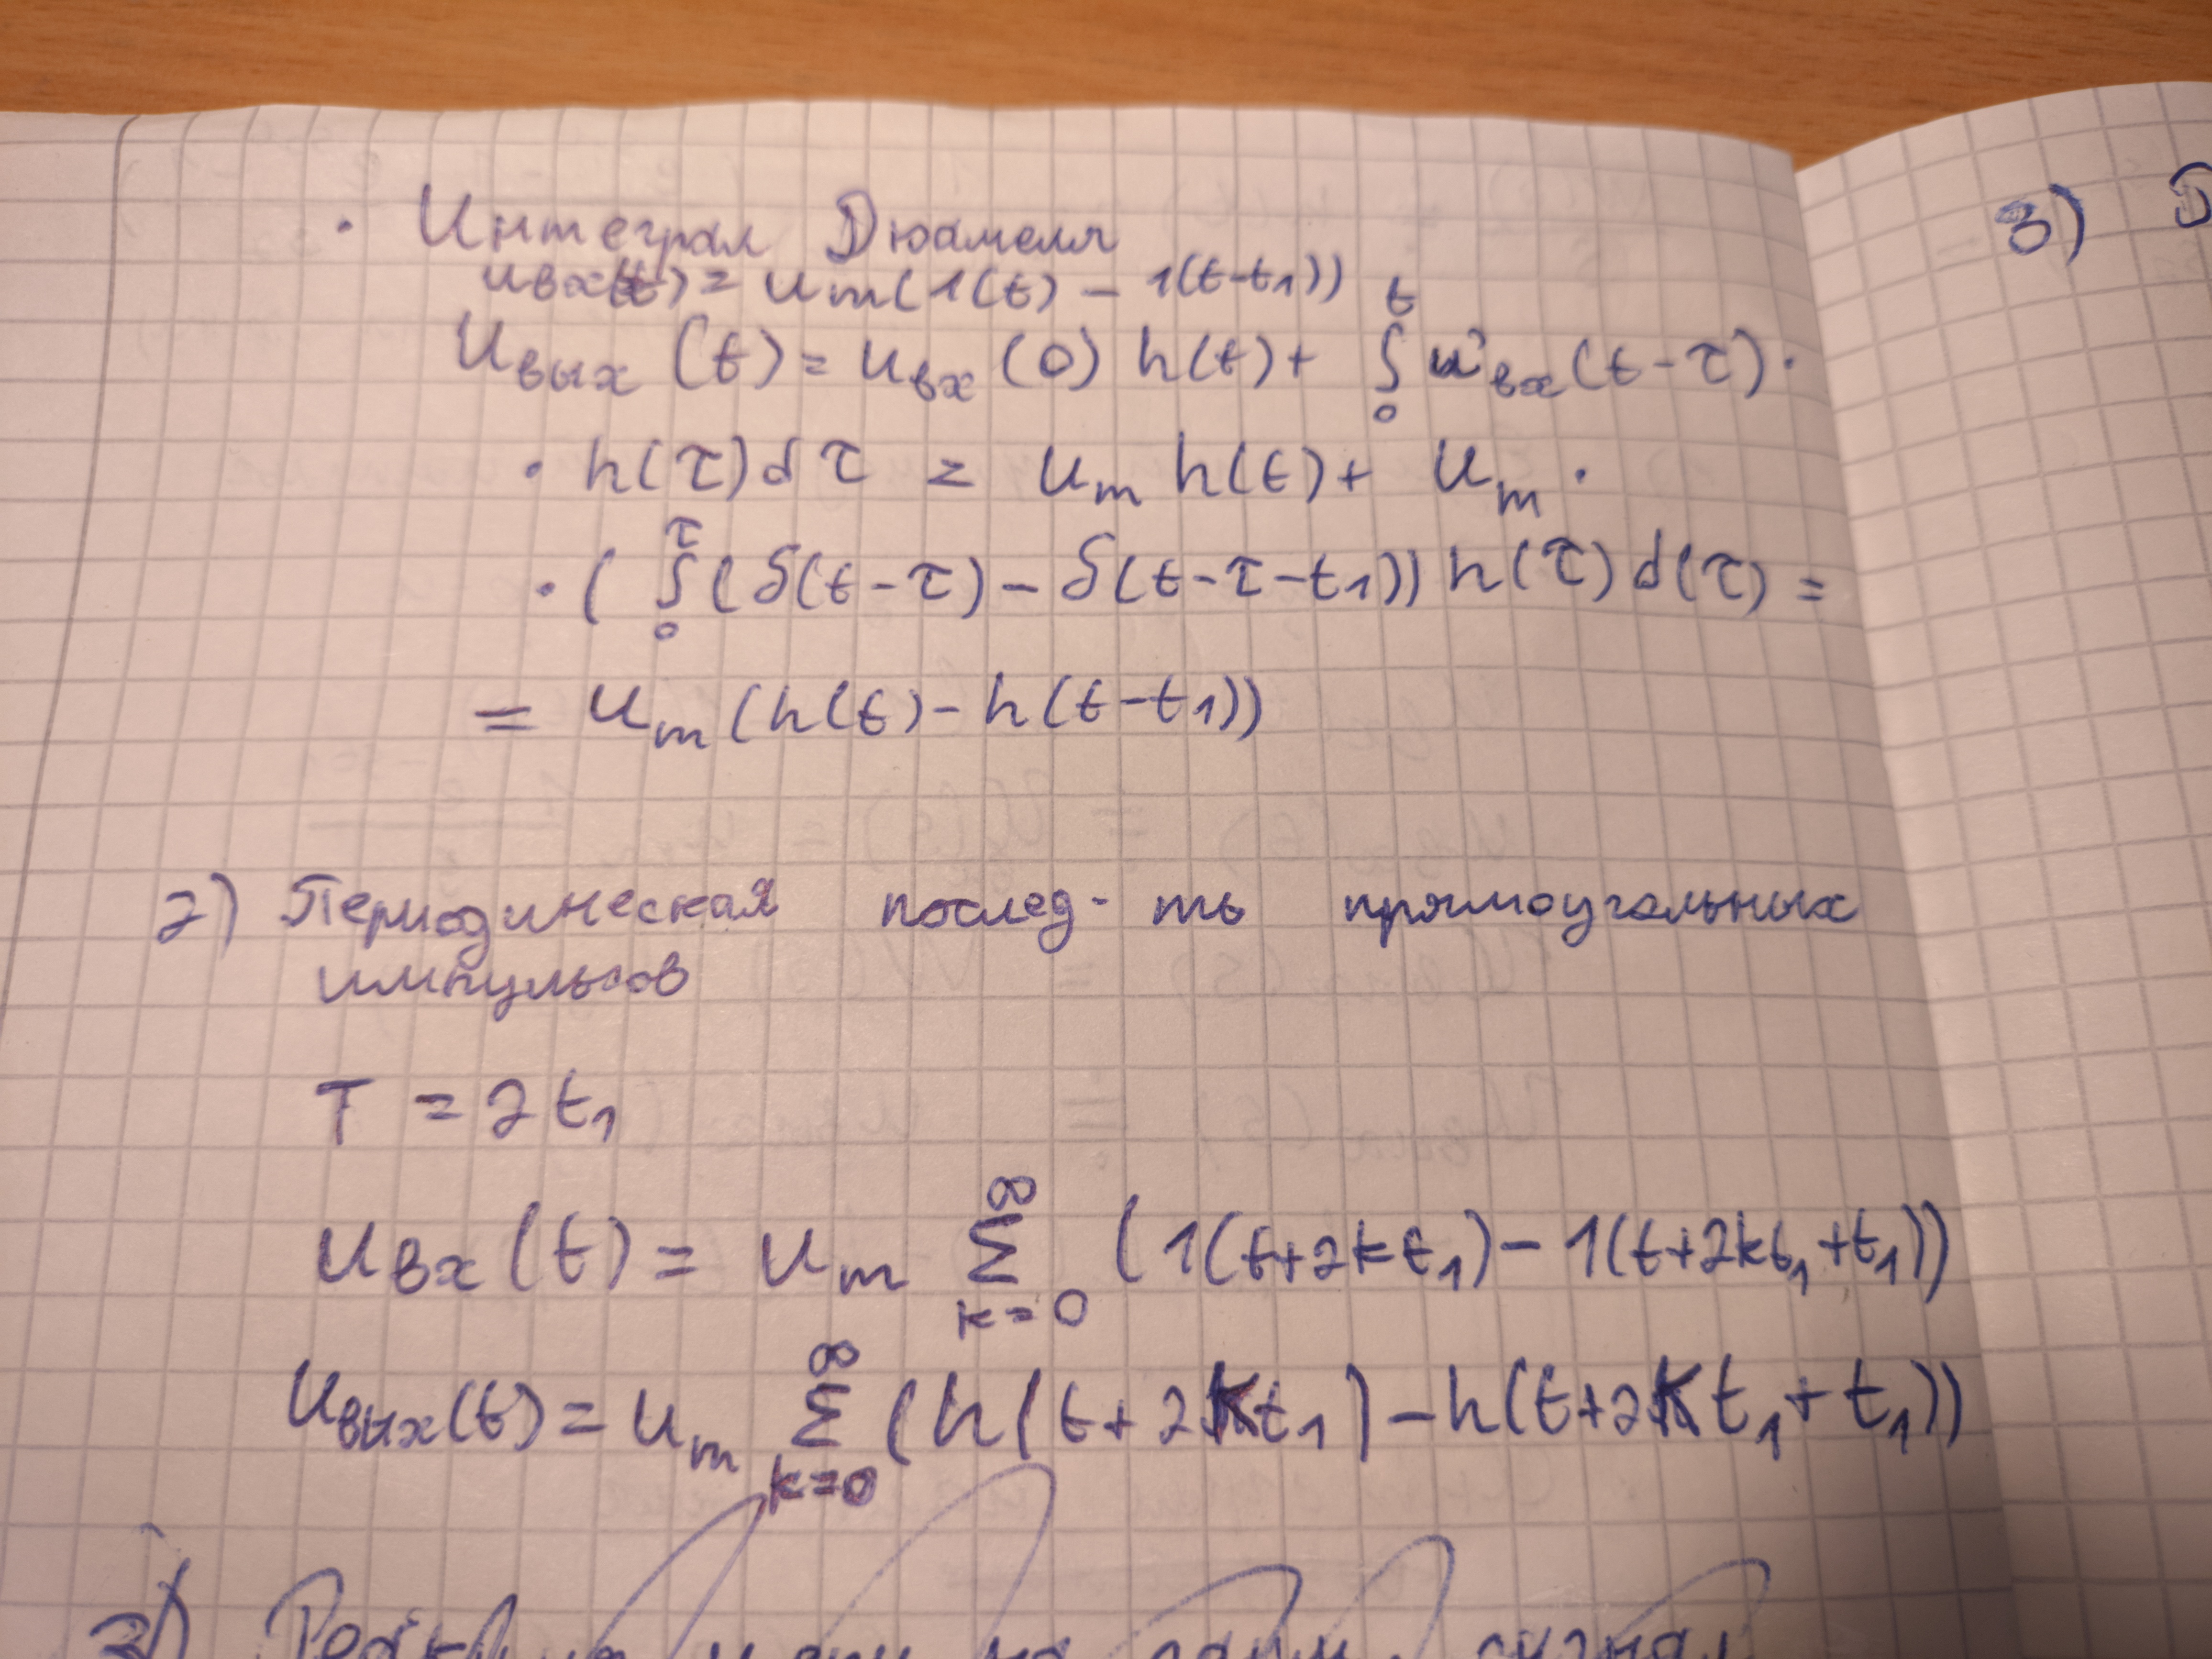 • Интеграл Дюамеля
uвх(t) = um(1(t) - 1(t-t₁))
Uвых(t) = uвх(0) h(t) + ∫₀ᵗ u'вх(t-τ) ·
· h(τ)dτ = um h(t) + um ·
· (∫₀^τ (δ(t-τ) - δ(t-τ-t₁)) h(τ) d(τ) =
= um(h(t) - h(t-t₁))
2) Периодическая послед-ть прямоугольных
импульсов
T = 2t₁
uвх(t) = um ∑_{k=0}^∞ (1(t+2kt₁) - 1(t+2kt₁+t₁))
Uвых(t) = um ∑_{k=0}^∞ (h(t+2kt₁) - h(t+2kt₁+t₁))
3) Реакция цепи на один. сигнал
3)